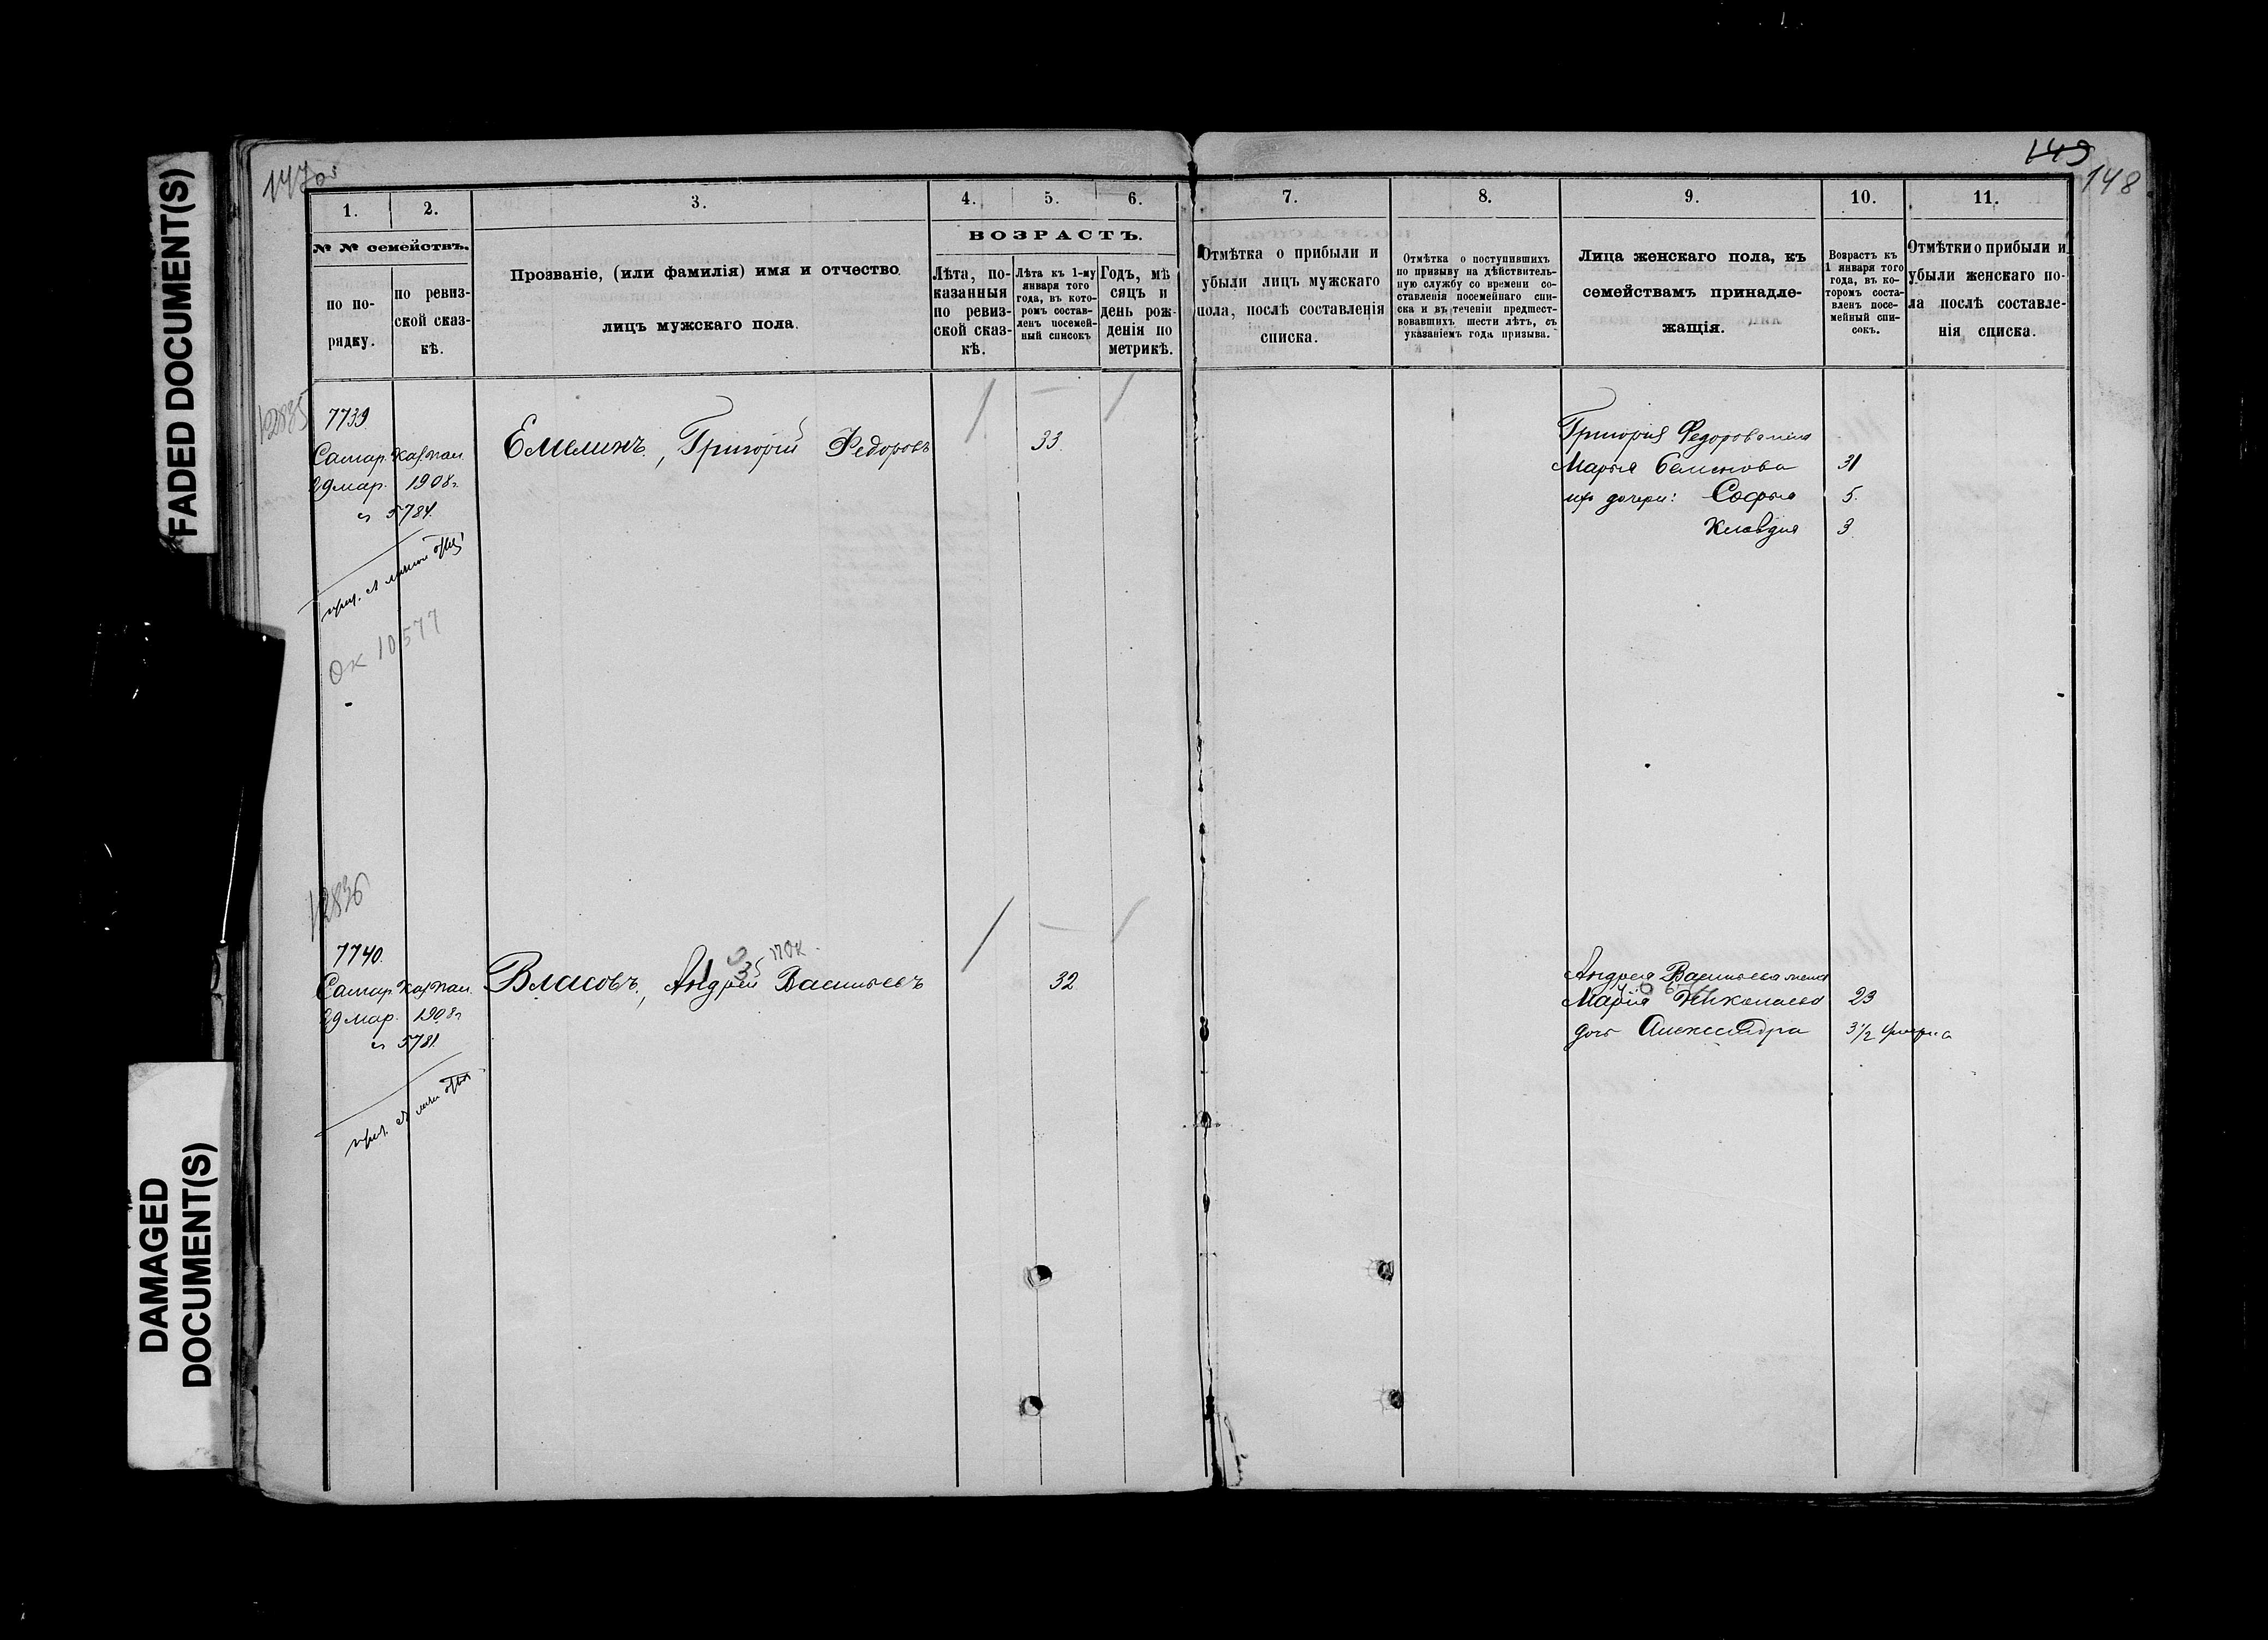 FADED DOCUMENT(S)
DAMAGED
DOCUMENT(S)
147об
149
148
1.
2.
3.
4.
5.
6.
№ № семействъ.
по по-
рядку.
по ревиз-
ской сказ-
кѣ.
Прозваніе, (или фамилія) имя и отчество
лицъ мужскаго пола.
ВОЗРАСТЪ.
Лѣта, по-
казанныя
по ревиз-
ской сказ-
кѣ.
Лѣта къ 1-му
января того
года, въ кото-
ромъ состав-
ленъ посемей-
ный список
Годъ, мѣ
сяцъ и
день рож-
денія по
метрикѣ.
7.
8.
9.
10.
11.
Отмѣтка о прибыли и
убыли лицъ мужскаго
пола, послѣ составленія
списка.
Отмѣтка о поступившихъ
по призыву на дѣйствитель-
ную службу со времени со-
ставленія посемейнаго спи-
ска и въ теченіи предшест-
вовавшихъ шести лѣтъ, съ
указаніемъ года призыва.
Лица женскаго пола, къ
семействамъ принадле-
жащія.
Возрастъ къ
1 января того
года, въ ко-
торомъ соста-
вленъ посе-
мейный спи-
сокъ.
Отмѣтки о прибыли и
убыли женскаго по-
ла послѣ составле-
нія списка.
12835
7739
Самар. Каз. пал.
29 мар. 1908 г.
5784.
ОК 10577
Емелинъ, Григорій Федоровъ
33
Григорія Федорова жена
Марья Семенова 31
их дочери: Софья 5.
Клавдия 3.
12836
7740.
Самар. Каз. пал.
29 мар. 1908 г.
5781.
Власовъ, Андрей Васильевъ
32
Андрея Васильева жена
Марія Николаева 23
дочь Александра 3 1/2